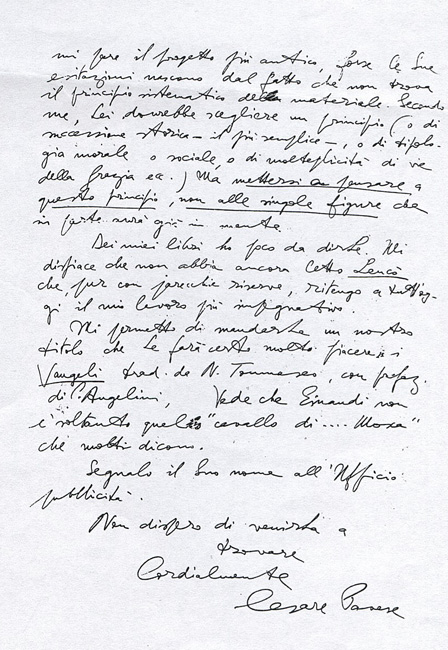 mi pare il progetto più antico, forse le Sue
esitazioni nascono dal fatto che non trova
il principio sistematico della materiale. Secondo
me, Lei dovrebbe scegliere un principio (o di
successione storica – il più semplice –, o di tipolo-
gia morale o sociale, o di molteplicità di vie
della Grazia ecc.) Ma mettersi a pensare a
questo principio, non alle singole figure che
in parte avrà già in mente.
Dei miei libri ho poco da dirLe. Mi
dispiace che non abbia ancora letto Leucò
che, pur con parecchie riserve, ritengo a tutt'og-
gi il mio lavoro più impegnativo.
Mi permetto di mandarLe un nostro
titolo che Le farà certo molto piacere: i
Vangeli trad. da N. Tommaseo, con prefaz.
di C. Angelini. Vede che Einaudi non
è soltanto quel "cavallo di .... Mosca"
che molti dicono.
Segnalo il Suo nome all'Ufficio
pubblicità.
Non dispero di venirLa a
trovare
Cordialmente
Cesare Pavese